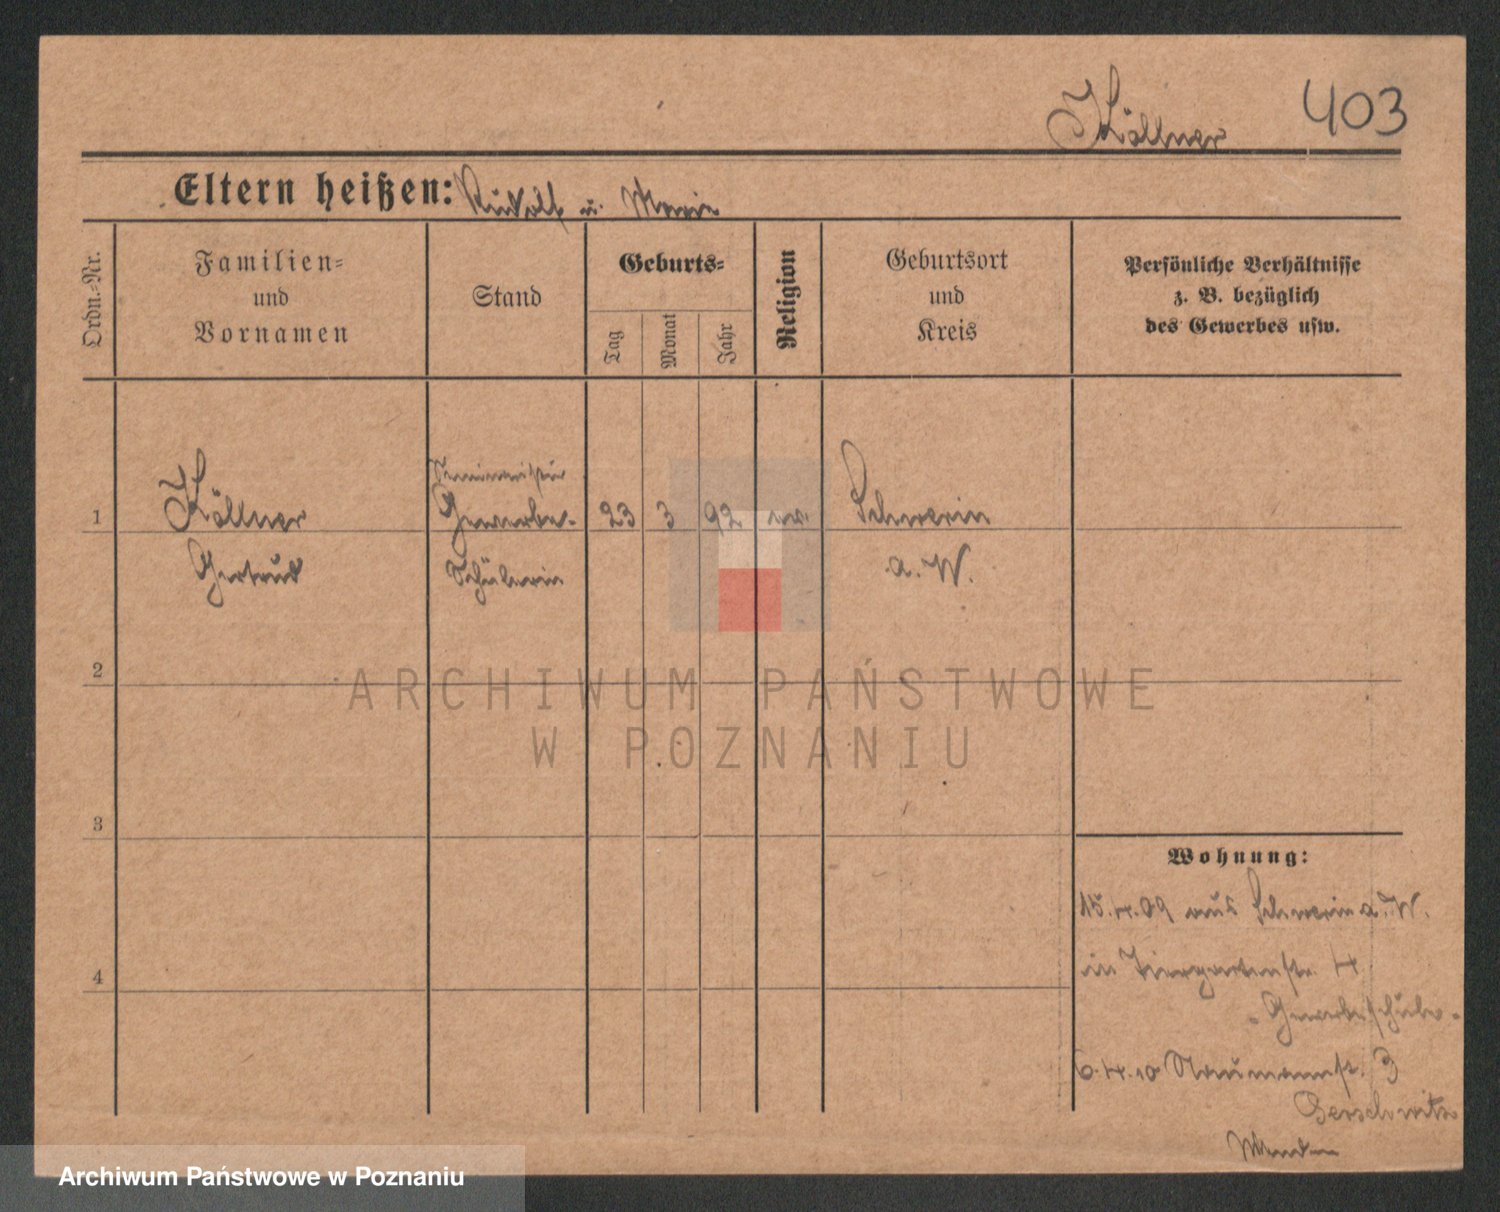 Köllner 403
Eltern heißen: Rudolf u. Marie
Ordn.-Nr.
Familien-
und
Vornamen
Stand
Geburts-
Tag
Monat
Jahr
Religion
Geburtsort
und
Kreis
Persönliche Verhältnisse
z. B. bezüglich
des Gewerbes usw.
Seminaristin
1 Köllner Gewerbe- 23 3 92 ev. Schwerin
Gertrud Schülerin a. W.
2
3
4
Wohnung:
15.4.09 aus Schwerin a. W.
in Tiergartenstr. 4
- Gewerbeschule -
6.4.10 Naumannstr. 3
ARCHIWUM PAŃSTWOWE
W POZNANIU
Archiwum Państwowe w Poznaniu